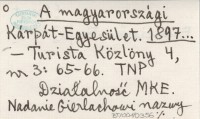 A magyarországi
Kárpát-Egyesület. 1897...
- Turista Közlöny 4,
nr 3: 65-66. TNP
Działalność MKE.
Nadanie Gierlachowi nazwy